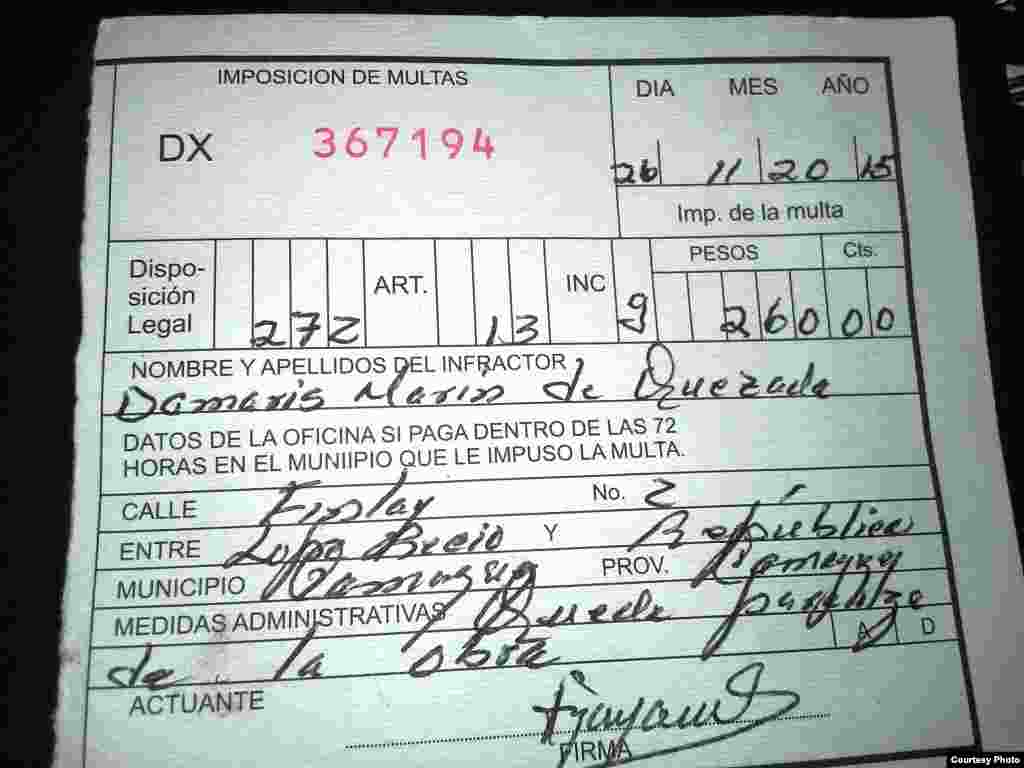 IMPOSICION DE MULTAS
DIA MES AÑO
DX 367194
26 11 20 15
Imp. de la multa
PESOS Cts.
Dispo-
sición
Legal
272 ART. 13 INC 9 260 00
NOMBRE Y APELLIDOS DEL INFRACTOR
Damaris Marin de Quezada
DATOS DE LA OFICINA SI PAGA DENTRO DE LAS 72
HORAS EN EL MUNIIPIO QUE LE IMPUSO LA MULTA.
CALLE Finlay No. 2
ENTRE Lope Recio Y República
MUNICIPIO Camaguey PROV. Camaguey
MEDIDAS ADMINISTRATIVAS Quede
A D
de la obra
ACTUANTE
FIRMA
Courtesy Photo